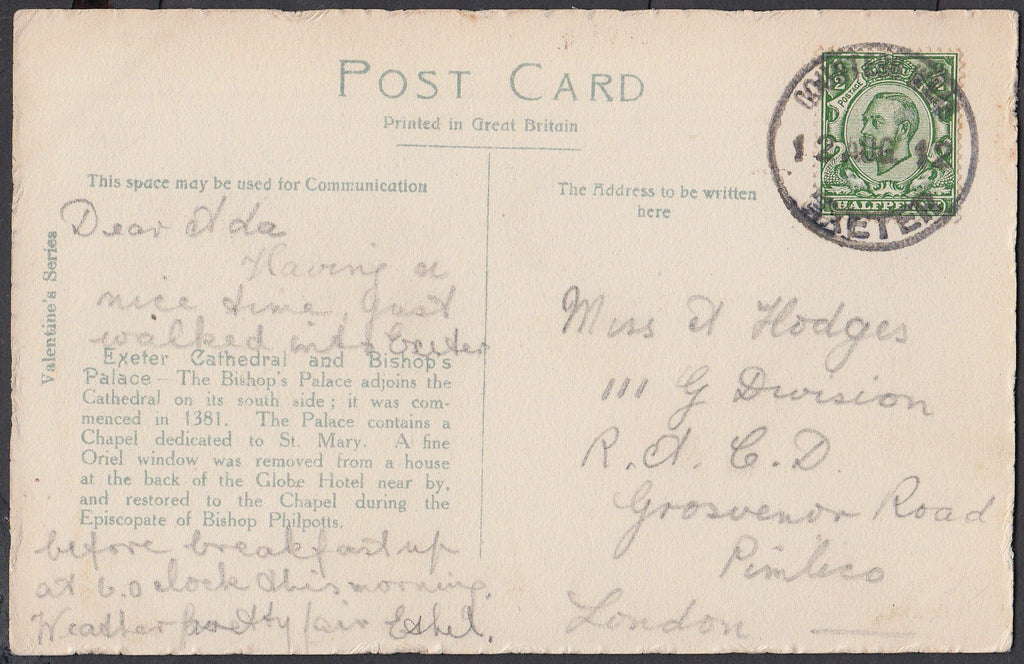 POST CARD
Printed in Great Britain
This space may be used for Communication
The Address to be written
here
Valentine's Series
Dear Ada
Having a
nice time, Just
walked into Exeter
Exeter Cathedral and Bishop's
Palace — The Bishop's Palace adjoins the
Cathedral on its south side; it was com-
menced in 1381. The Palace contains a
Chapel dedicated to St. Mary. A fine
Oriel window was removed from a house
at the back of the Globe Hotel near by,
and restored to the Chapel during the
Episcopate of Bishop Philpotts.
before breakfast up
at 6.o clock this morning.
Weather pretty fair Ethel.
Miss A Hodges
111 G Division
R. A. C. D.
Grosvenor Road
Pimlico
London
POSTAGE
HALFPENNY
12 AUG 12
EXETER